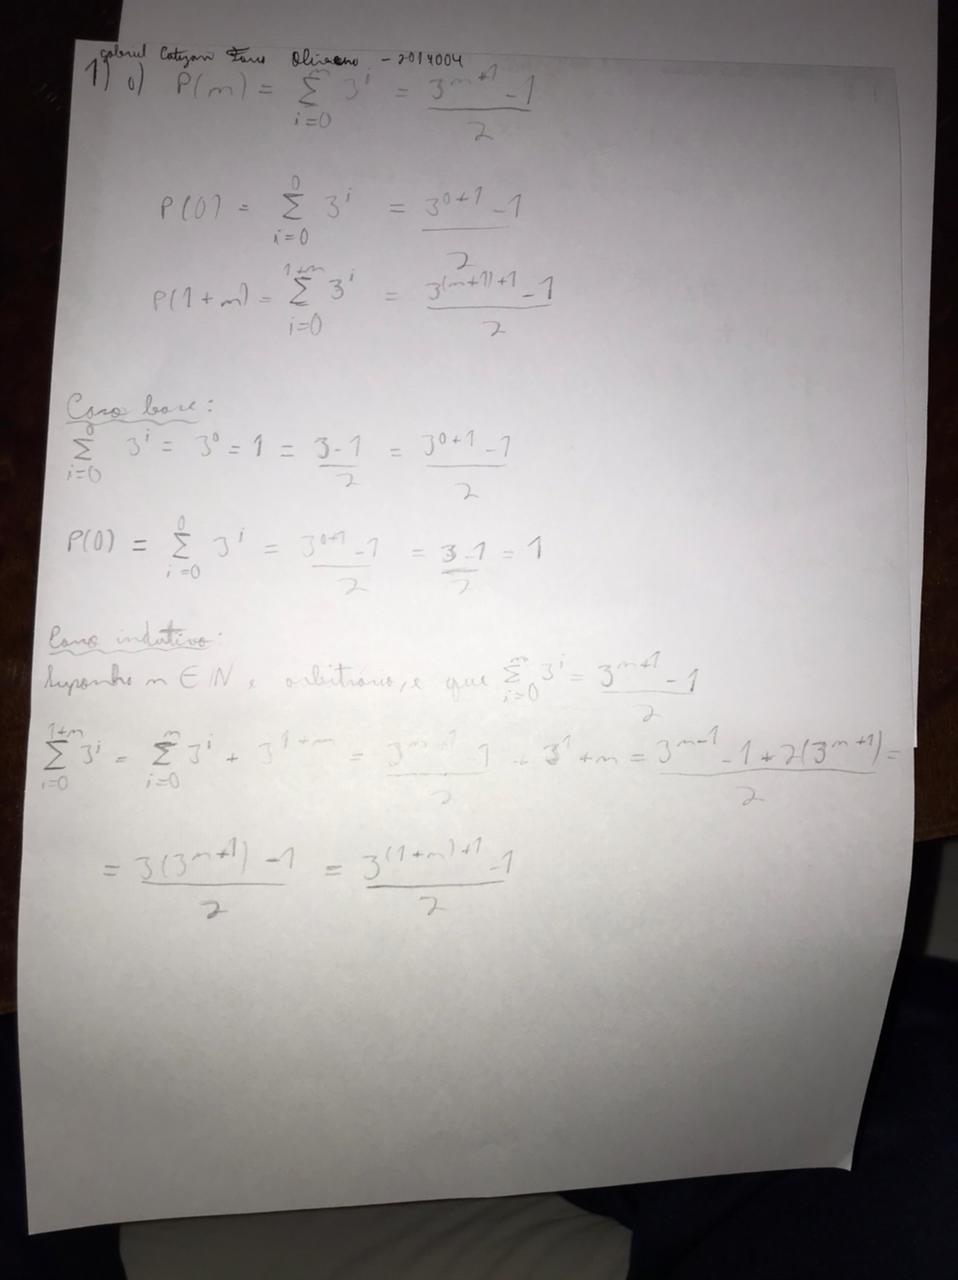 Gabriel Oliveira - 2014004
1) a) P(n) = ∑_{i=0}^{n} 3^i = (3^{n+1} - 1)/2
P(0) = ∑_{i=0}^{0} 3^i = (3^{0+1} - 1)/2
P(1+n) = ∑_{i=0}^{1+n} 3^i = (3^{(n+1)+1} - 1)/2
Caso base:
∑_{i=0}^{0} 3^i = 3^0 = 1 = (3-1)/2 = (3^{0+1} - 1)/2
P(0) = ∑_{i=0}^{0} 3^i = (3^{0+1} - 1)/2 = (3-1)/2 = 1
Caso indutivo:
Suponha n ∈ ℕ, arbitrário, e que ∑_{i=0}^{n} 3^i = (3^{n+1} - 1)/2
∑_{i=0}^{1+n} 3^i = ∑_{i=0}^{n} 3^i + 3^{1+n} = (3^{n+1} - 1)/2 + 3^1+n = (3^{n+1} - 1 + 2(3^{n+1}))/2 =
= (3(3^{n+1}) - 1)/2 = (3^{(1+n)+1} - 1)/2